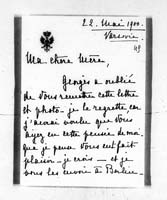 22. Mai 1900.
Varsovie
49
Ma chère Mère,
Georges a oublié
de vous remettre cette lettre
et photo - je le regrette car
j'aurai voulu que vous
ayez eu cette pensée de moi
que je peux vous fait
plaisir - je crois - et je
vous les envoie à Berlin